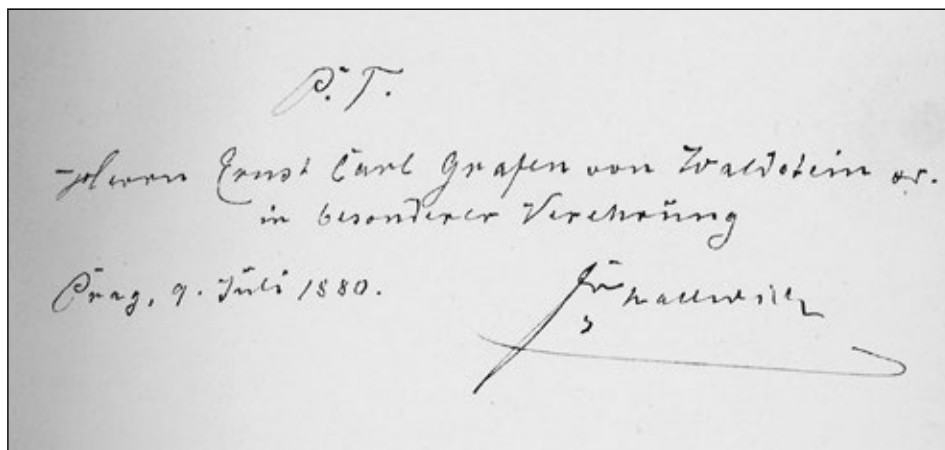 P. T.
Herrn Ernst Carl Grafen von Waldstein
in besonderer Verehrung
Prag, 9. Juli 1880.
Hallwich